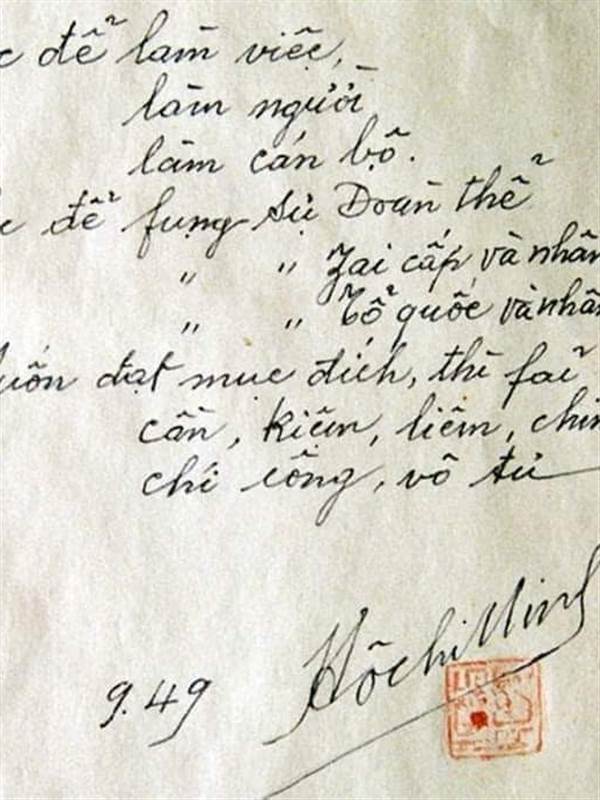 c để làm việc,
làm người
làm cán bộ.
c để fụng sự Đoàn thể
" " Zai cấp và nhân
" " Tổ quốc và nhân
uốn đạt mục đích, thì fải
cần, kiệm, liêm, chín
chí công, vô tư
HồchíMinh
9.49